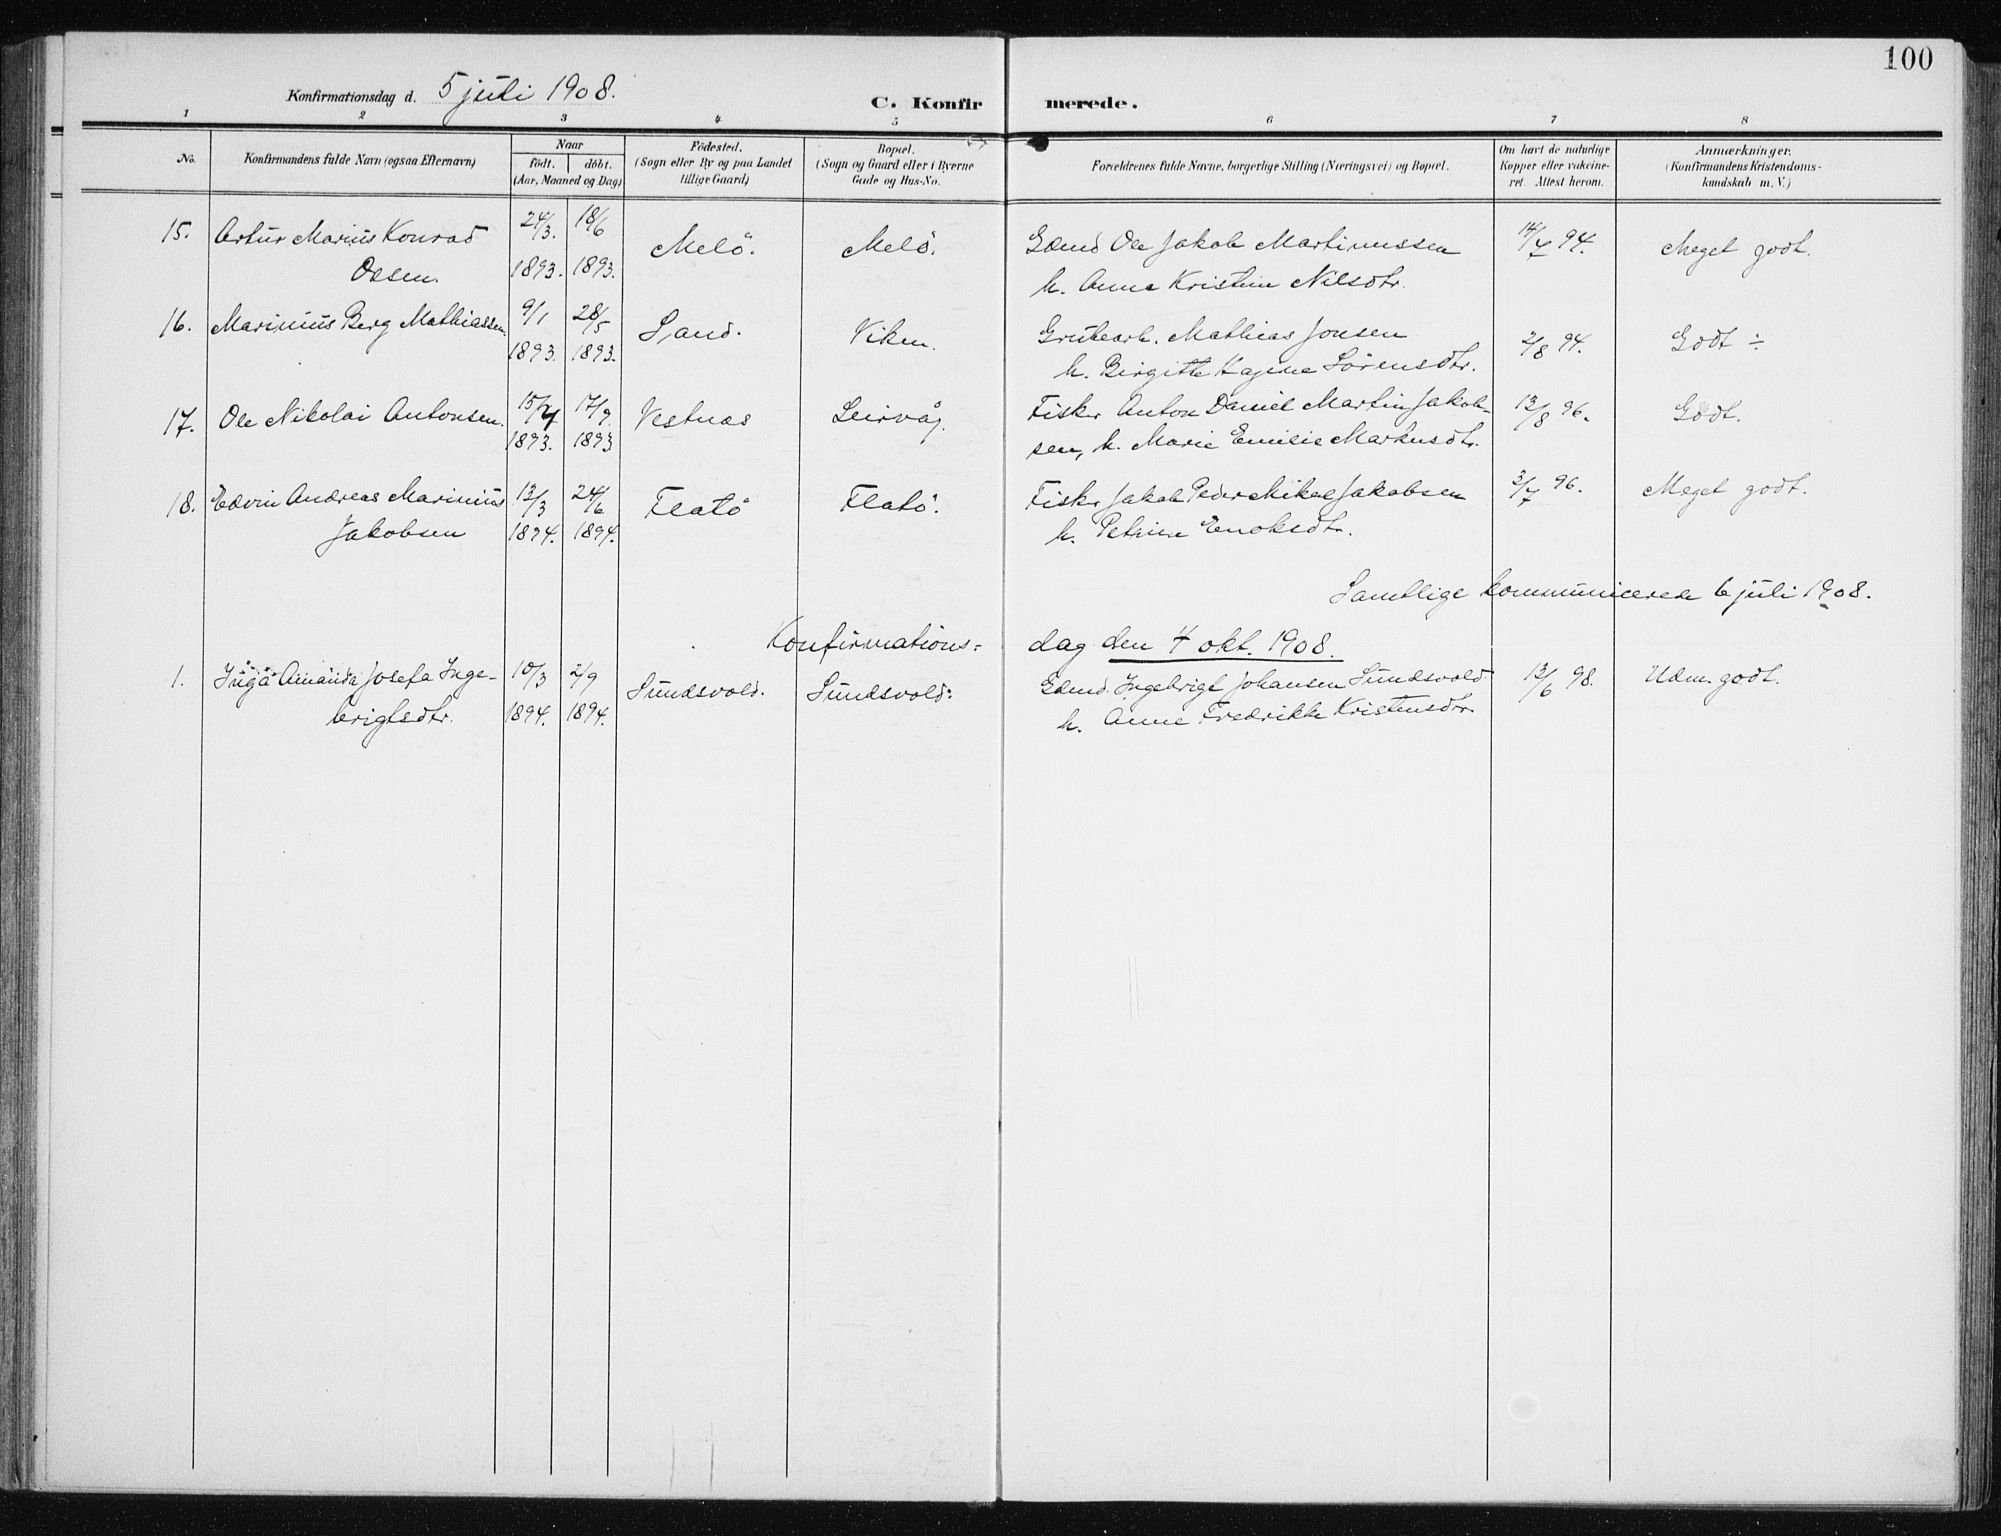 100
Konfirmationsdag d. 5 juli 1908.
C. Konfirmerede.
1 2 3 4 5 6 7 8
No.
Konfirmandens fulde Navn (ogsaa Efternavn)
Naar
födt. döbt.
(Aar, Maaned og Dag)
Födested.
(Sogn eller By og paa Landet
tillige Gaard)
Bopæl.
(Sogn og Gaard eller i Byerne
Gade og Hus-No.
Forældrenes fulde Navne, borgerlige Stilling (Næringsvei) og Bopæl.
Om havt de naturlige
Kopper eller vakcine-
ret. Attest herom.
Anmærkninger.
(Konfirmandens Kristendoms-
kundskab m. V.)
15. Artur Marius Konrad 24/3. 18/6 Melö. Melö. Gdmd Ole Jakob Martinussen 14/7 94. Meget godt.
Olsen. 1893. 1893. h. Anna Kristine Nilsdtr.
16. Marinius Berg Mathiassen 9/1 28/5 Sand. Viken. Grubearb. Mathias Jonsen 2/8 94. Godt ÷
1893. 1893. h. Birgitte Kajine Sörensdtr.
17. Ole Nikolai Antonsen. 15/7 17/9. Vestnæs Leirvåg. Fisker Anton Daniel Martin Jakob- 13/8 96. Godt.
1893. 1893 sen, h. Marie Emilie Markusdtr.
18. Edvin Andreas Marinius 13/3 24/6 Flatö Flatö. Fisker Jakob Peder Mikal Jakobsen 3/7 96. Meget godt.
Jakobsen 1894. 1894. h. Petrine Enoksdtr.
Samtlige kommunicerede 6 juli 1908.
Konfirmations-dag den 4 okt. 1908.
1. Inga Amanda Josefa Inge- 10/3 2/9 Sundsvold. Sundsvold. Gdmd. Ingebrigt Johansen Sundsvold 13/6 98. Udm. godt.
brigtsdtr. 1894. 1894. h. Anne Fredrikke Kristensdtr